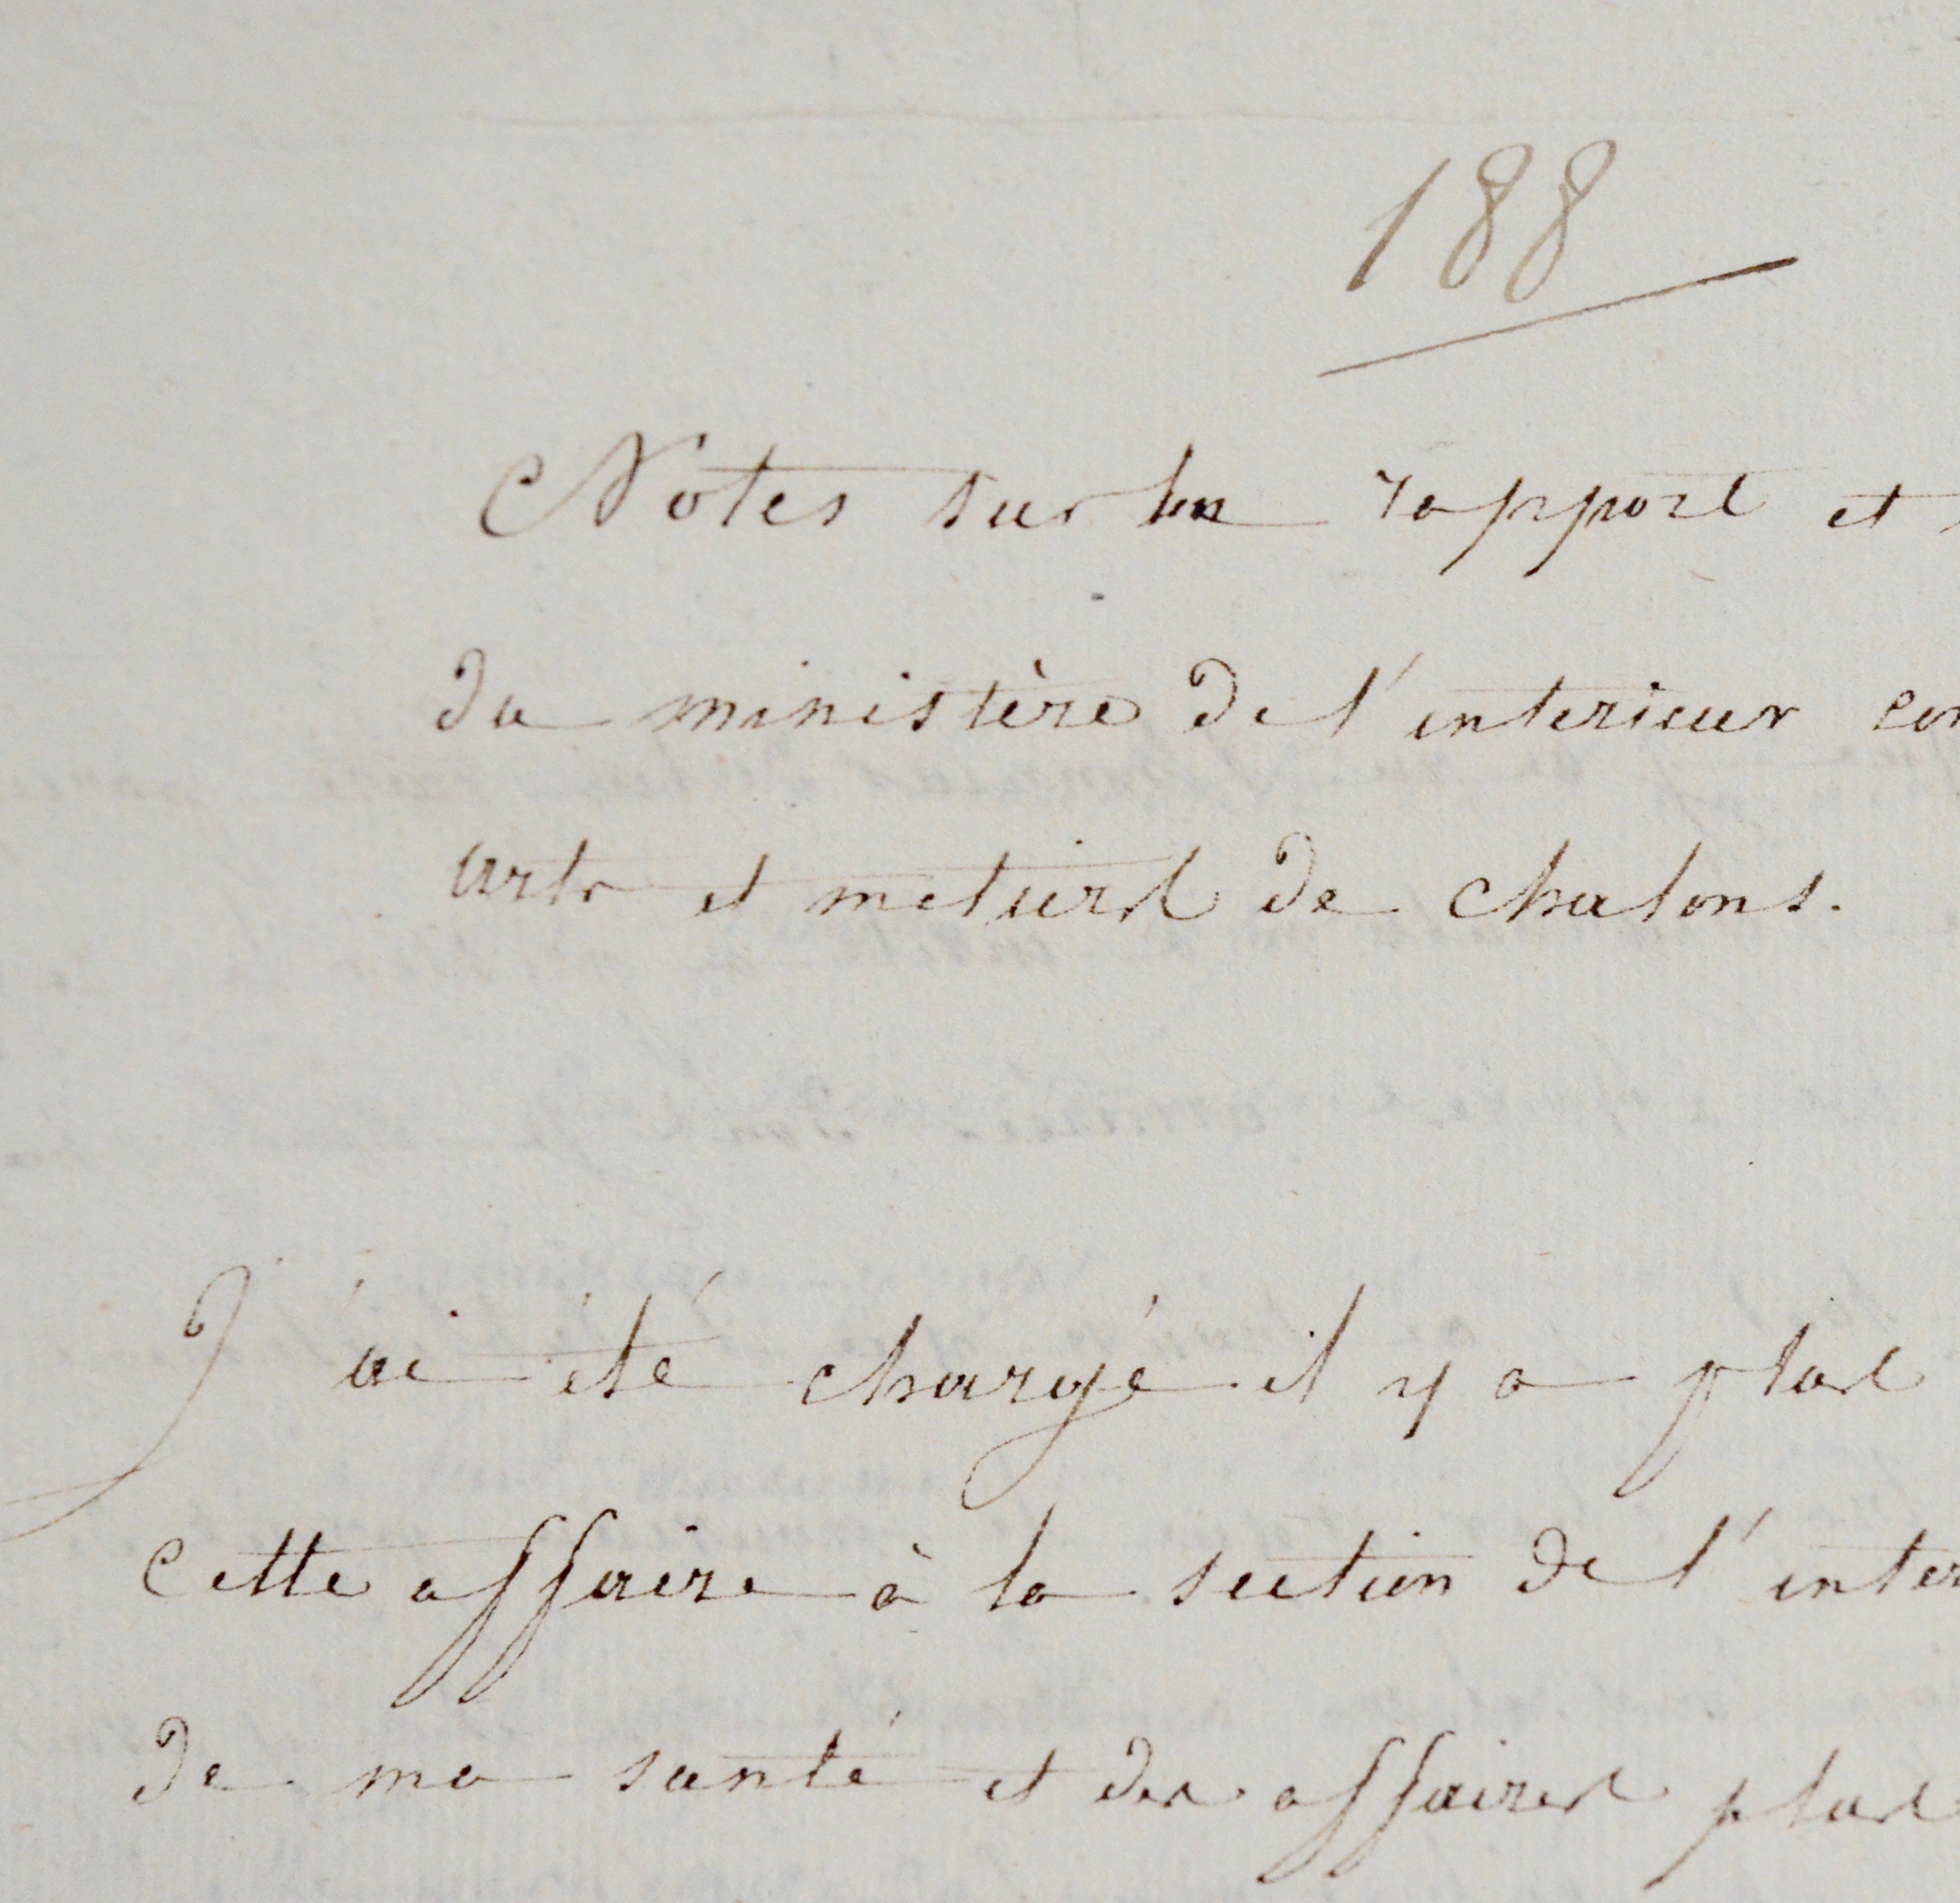 188
Notes sur un rapport et
du ministère de l'interieur con
arts et metiers de chalons.
J'ai été chargé il y a plus
cette affaire à la section de l'inter
de ma santé et des affaires plus